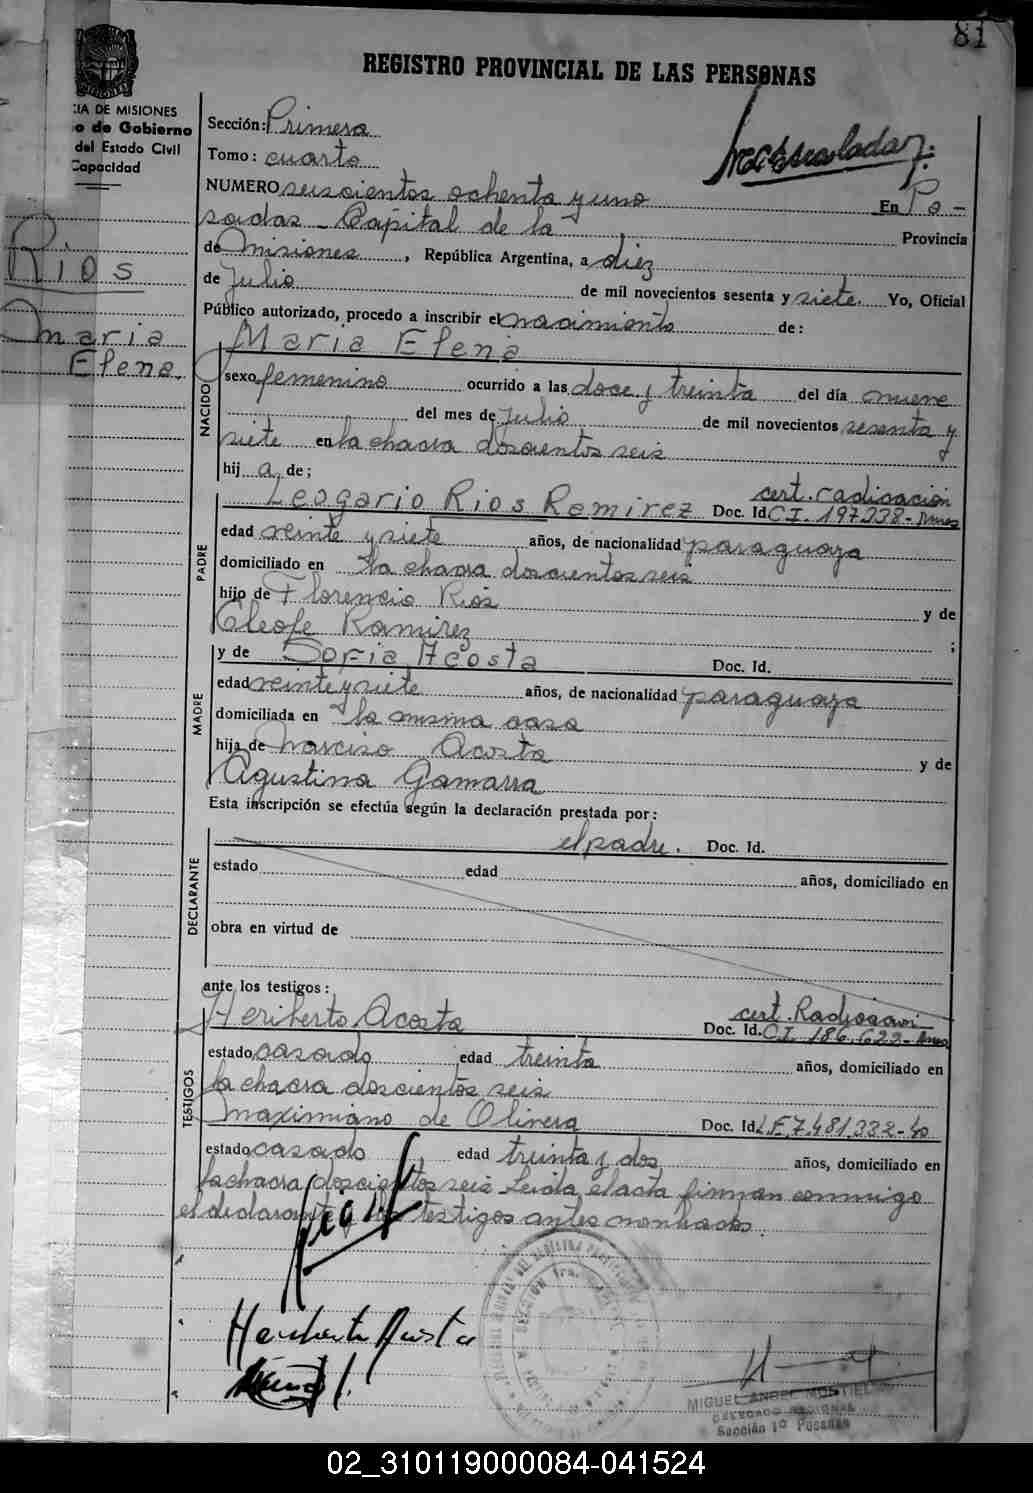 81
REGISTRO PROVINCIAL DE LAS PERSONAS
CIA DE MISIONES
o de Gobierno
del Estado Civil
Capacidad
Sección: Primera
Tomo: cuarto
NUMERO seiscientos ochenta y uno En Po-
sadas - Capital de la Provincia
de Misiones, República Argentina, a diez
de Julio de mil novecientos sesenta y siete. Yo, Oficial
Público autorizado, procedo a inscribir el nacimiento de:
Rios
Maria
Elena
NACIDO
Maria Elena
sexo femenino ocurrido a las doce y treinta del día nueve
del mes de Julio de mil novecientos sesenta y
siete en la chacra doscientos seis
hij a de;
PADRE
cert. radicación
Leogario Rios Ramirez Doc. Id. C.I. 197.338-
edad veinte y siete años, de nacionalidad paraguaya
domiciliado en la chacra doscientos seis
hijo de Florencio Rios y de
Cleofe Ramirez ;
MADRE
y de Sofia Acosta Doc. Id.
edad veinte y siete años, de nacionalidad paraguaya
domiciliada en la misma casa
hija de Narciso Acosta y de
Agustina Gamarra
Esta inscripción se efectúa según la declaración prestada por:
DECLARANTE
el padre. Doc. Id.
estado edad años, domiciliado en
obra en virtud de
ante los testigos:
TESTIGOS
cert. Radicaci-
Heriberto Acosta Doc. Id. C.I. 186.623-
estado casado edad treinta años, domiciliado en
la chacra doscientos seis
Maximiano de Olivera Doc. Id. L.E 7.481.332-
estado casado edad treinta y dos años, domiciliado en
la chacra doscientos seis Leida el acta firman conmigo
el declarante y los testigos antes nombrados.
Heriberto Acosta
MIGUEL ANGEL MONTIEL
DELEGADO REGIONAL
Sección 1º Posadas
02_310119000084-041524